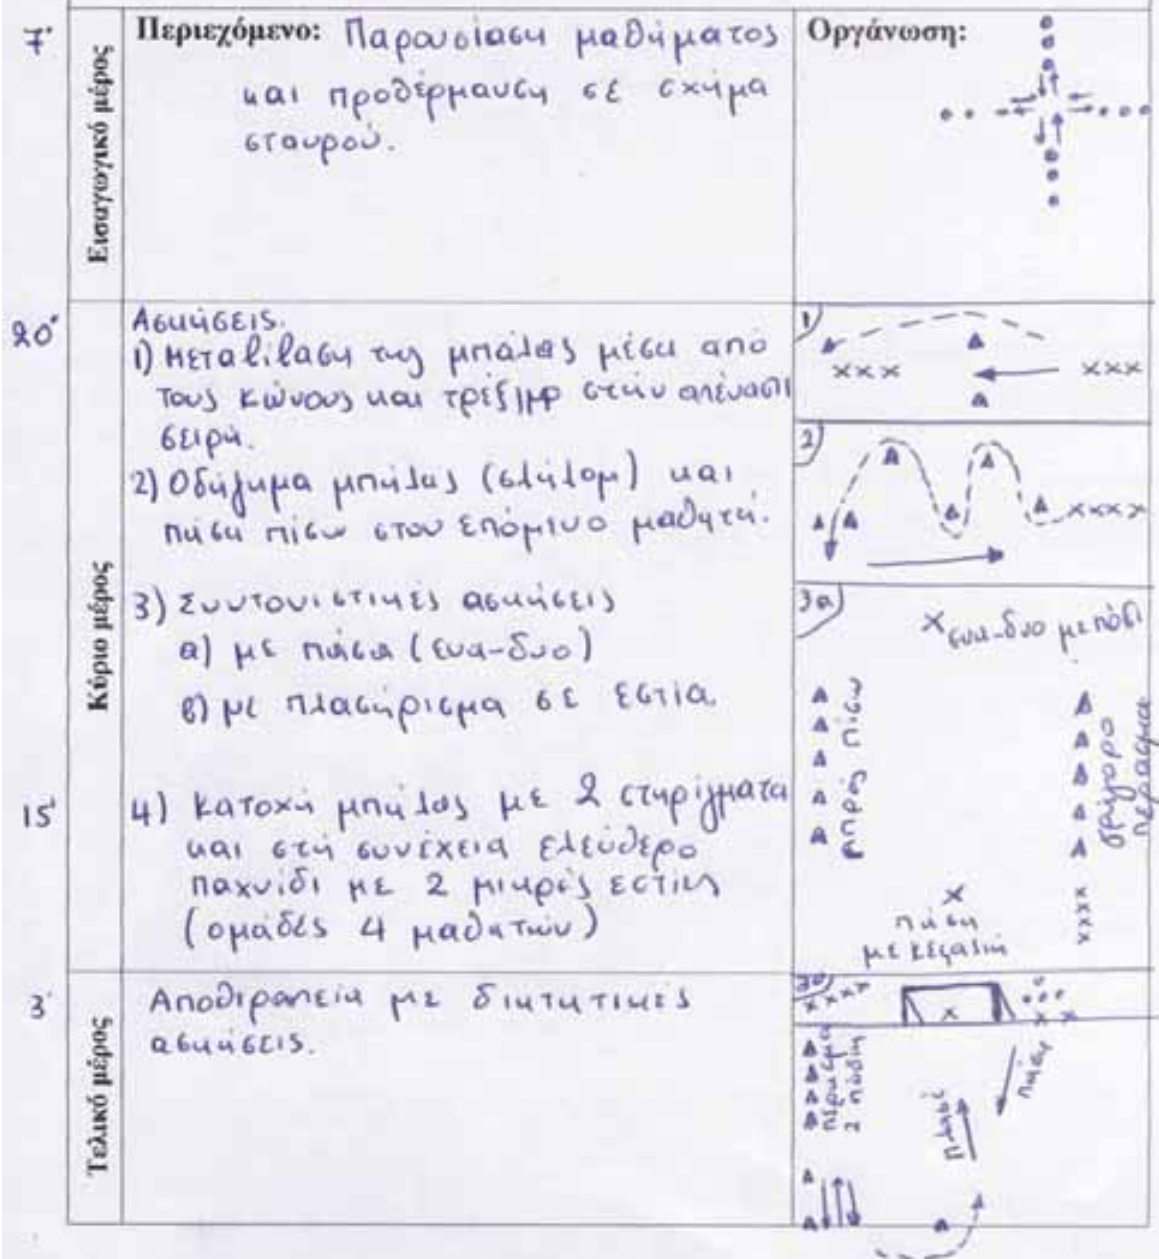 7'
Εισαγωγικό μέρος
Περιεχόμενο: Παρουσίαση μαθήματος
και προθέρμανση σε σχήμα
σταυρού.
Οργάνωση:
20'
Κύριο μέρος
Ασκήσεις.
1) Μεταβίβαση της μπάλας μέσα από
τους κώνους και τρέξιμο στην απέναντι
σειρά.
2) Οδήγημα μπάλας (σλάλομ) και
πάσα πίσω στον επόμενο μαθητή.
3) Συντονιστικές ασκήσεις
α) με πάσα (ενα-δυο)
β) με πλασάρισμα σε εστία.
15'
4) Κατοχή μπάλας με 2 στηρίγματα
και στη συνέχεια ελεύθερο
παχνίδι με 2 μικρές εστίες
(ομάδες 4 μαθητών)
1)
xxx
xxx
2)
xxxx
3α)
x ενα-δυο με πόδι
μπρος πίσω
γρήγορο
πέρασμα
xxxx
x
πάσα
με κεφαλιά
3'
Τελικό μέρος
Αποθεραπεία με διατατικές
ασκήσεις.
3β)
xxxx
x
x x
πέρασμα
2 πόδια
πλασέ
πάσα